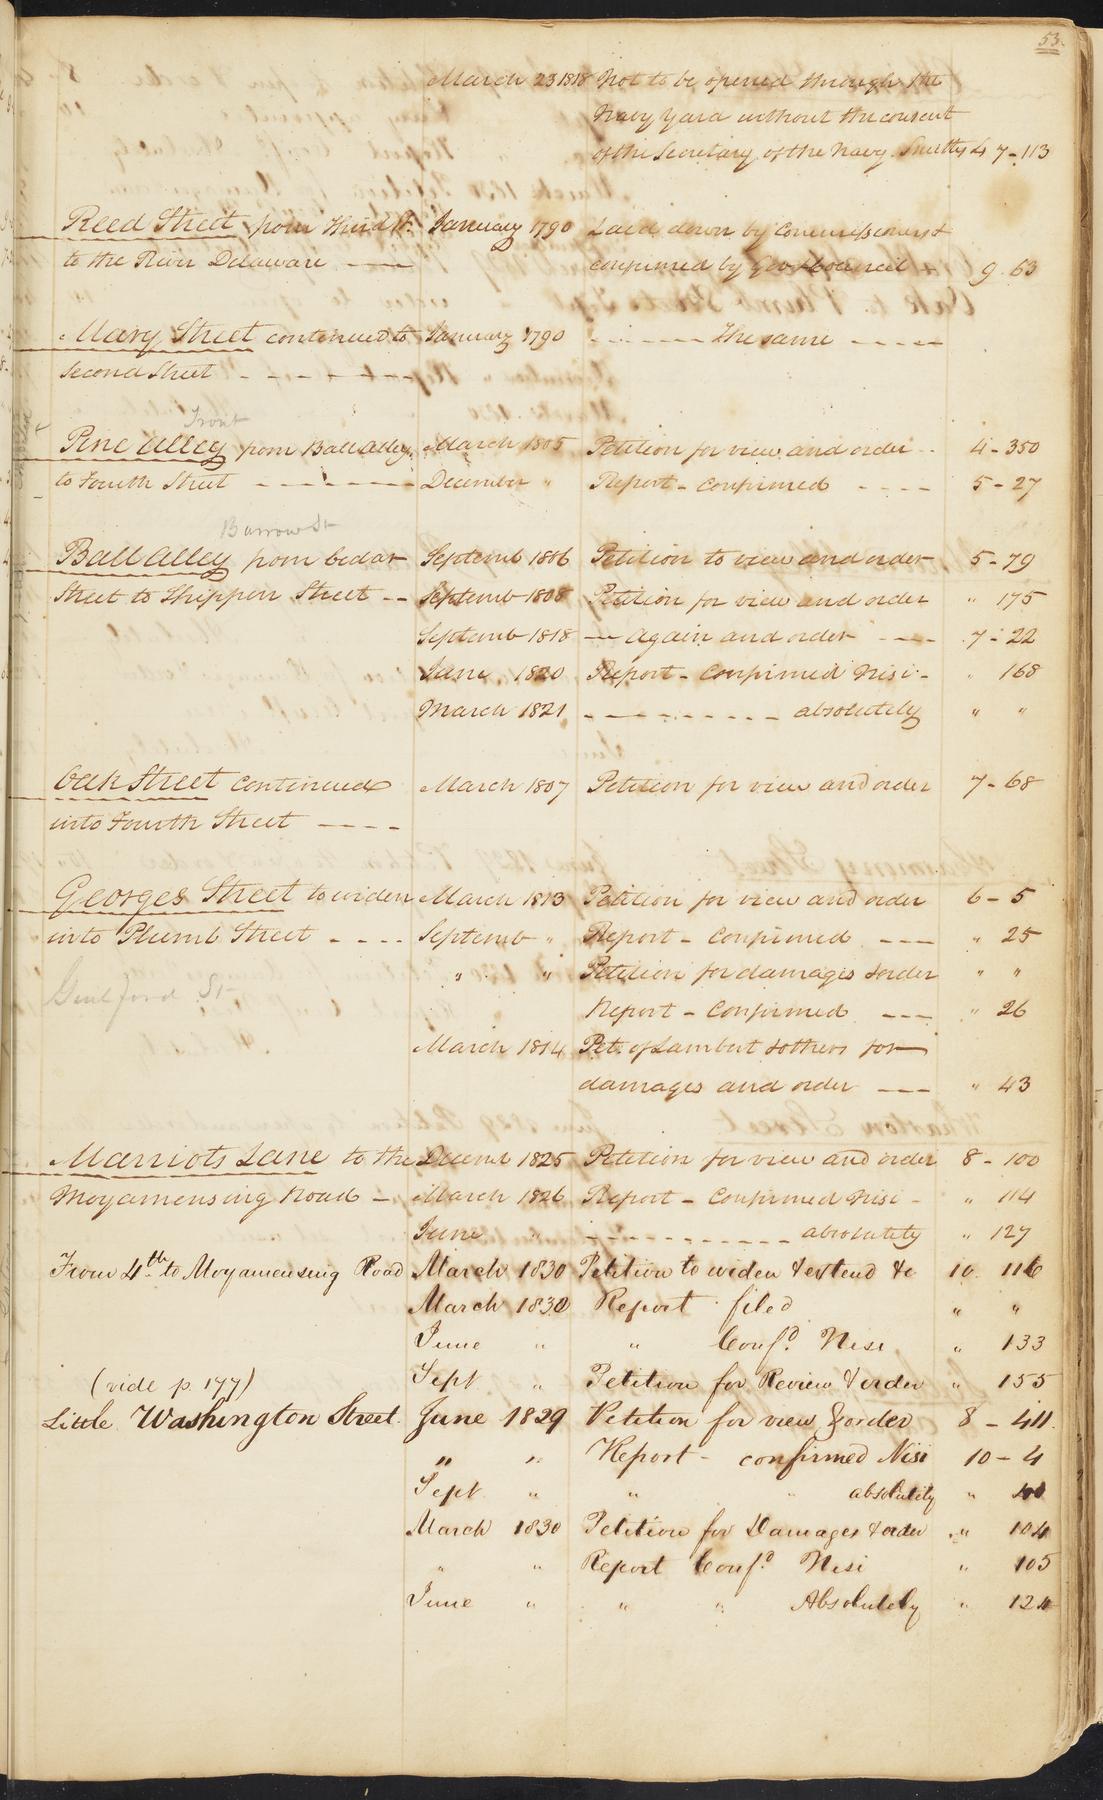 53.
March 23 1818 Not to be opened through the
Navy Yard without the consent
of the Secretary of the Navy. Smiths L 7-113
Reed Street from Third St. January 1790 Laid down by Commissioners &
to the River Delaware ---- confirmed by Gov & Council 9. 63
Mary Street continued to January 1790 ------ The same ----
Second Street - - - - - - -
Front
Pine Alley from Ball Alley March 1805 Petition for view and order -- 4-350
to Fourth Street ------- December " Report - Confirmed ---- 5-27
Barrow St
Ball Alley from Cedar Septemb 1806 Petition to view and order 5-79
Street to Shippen Street -- Septemb 1808 Petition for view and order " 175
Septemb 1818 --- again and order --- 7-22
June 1820 Report - Confirmed Nisi - " 168
March 1821 ---------- absolutely " "
Oak Street continued March 1807 Petition for view and order 7-68
into Fourth Street ----
Georges Street to widen March 1813 Petition for view and order 6-5
into Plumb Street ---- Septemb " Report - Confirmed --- " 25
" " Petition for damages & order " "
Guilford St
Report - Confirmed --- " 26
March 1814 Pet. of Lambert & others for
damages and order --- " 43
Marriots Lane to the Decemb 1825 Petition for view and order 8-100
Moyamensing Road - March 1826 Report - Confirmed Nisi - " 114
June " ----------- absolutely " 127
From 4th to Moyamensing Road March 1830 Petition to widen & extend &c 10. 116
March 1830 Report filed " "
June " " Conf.d Nisi " 133
(vide p. 177) Sept " Petition for Review & order " 155
Little Washington Street. June 1829 Petition for view & order 8-411.
" " Report - confirmed Nisi 10-4
Sept " " " absolutely "
March 1830 Petition for Damages & order " 104
" " Report Conf.d Nisi " 105
June " " " Absolutely " 124